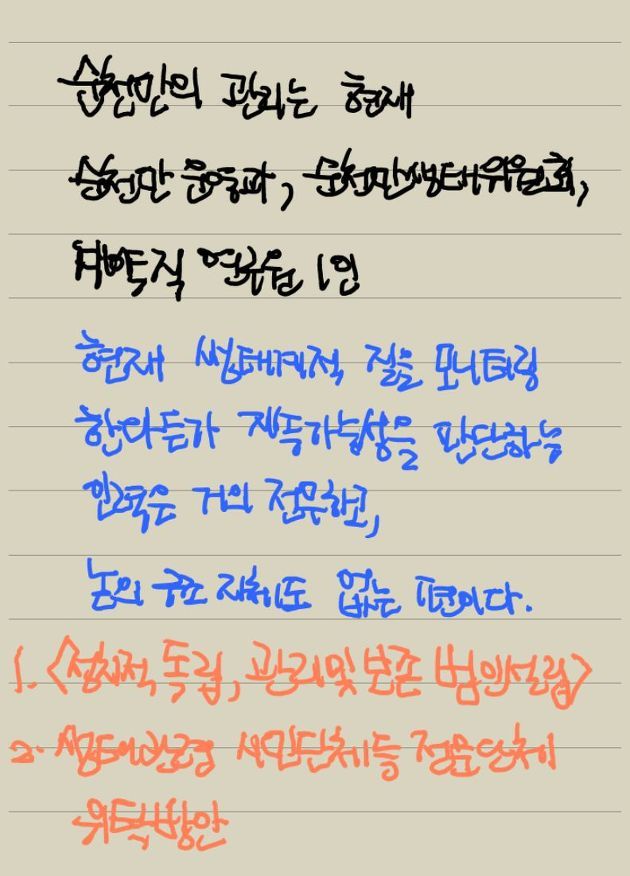 순천만의 관리는 현재
순천만 운영과, 순천만생태위원회,
계약직 연구원 1인
현재 생태계적 질을 모니터링
한다든가 지속가능성을 판단하는
인력은 거의 전무하고,
논의 구조 자체도 없는 편이다.
1. <정치적 독립, 관리 및 보존 법인설립>
2. 생태환경 시민단체등 전문단체
위탁방안